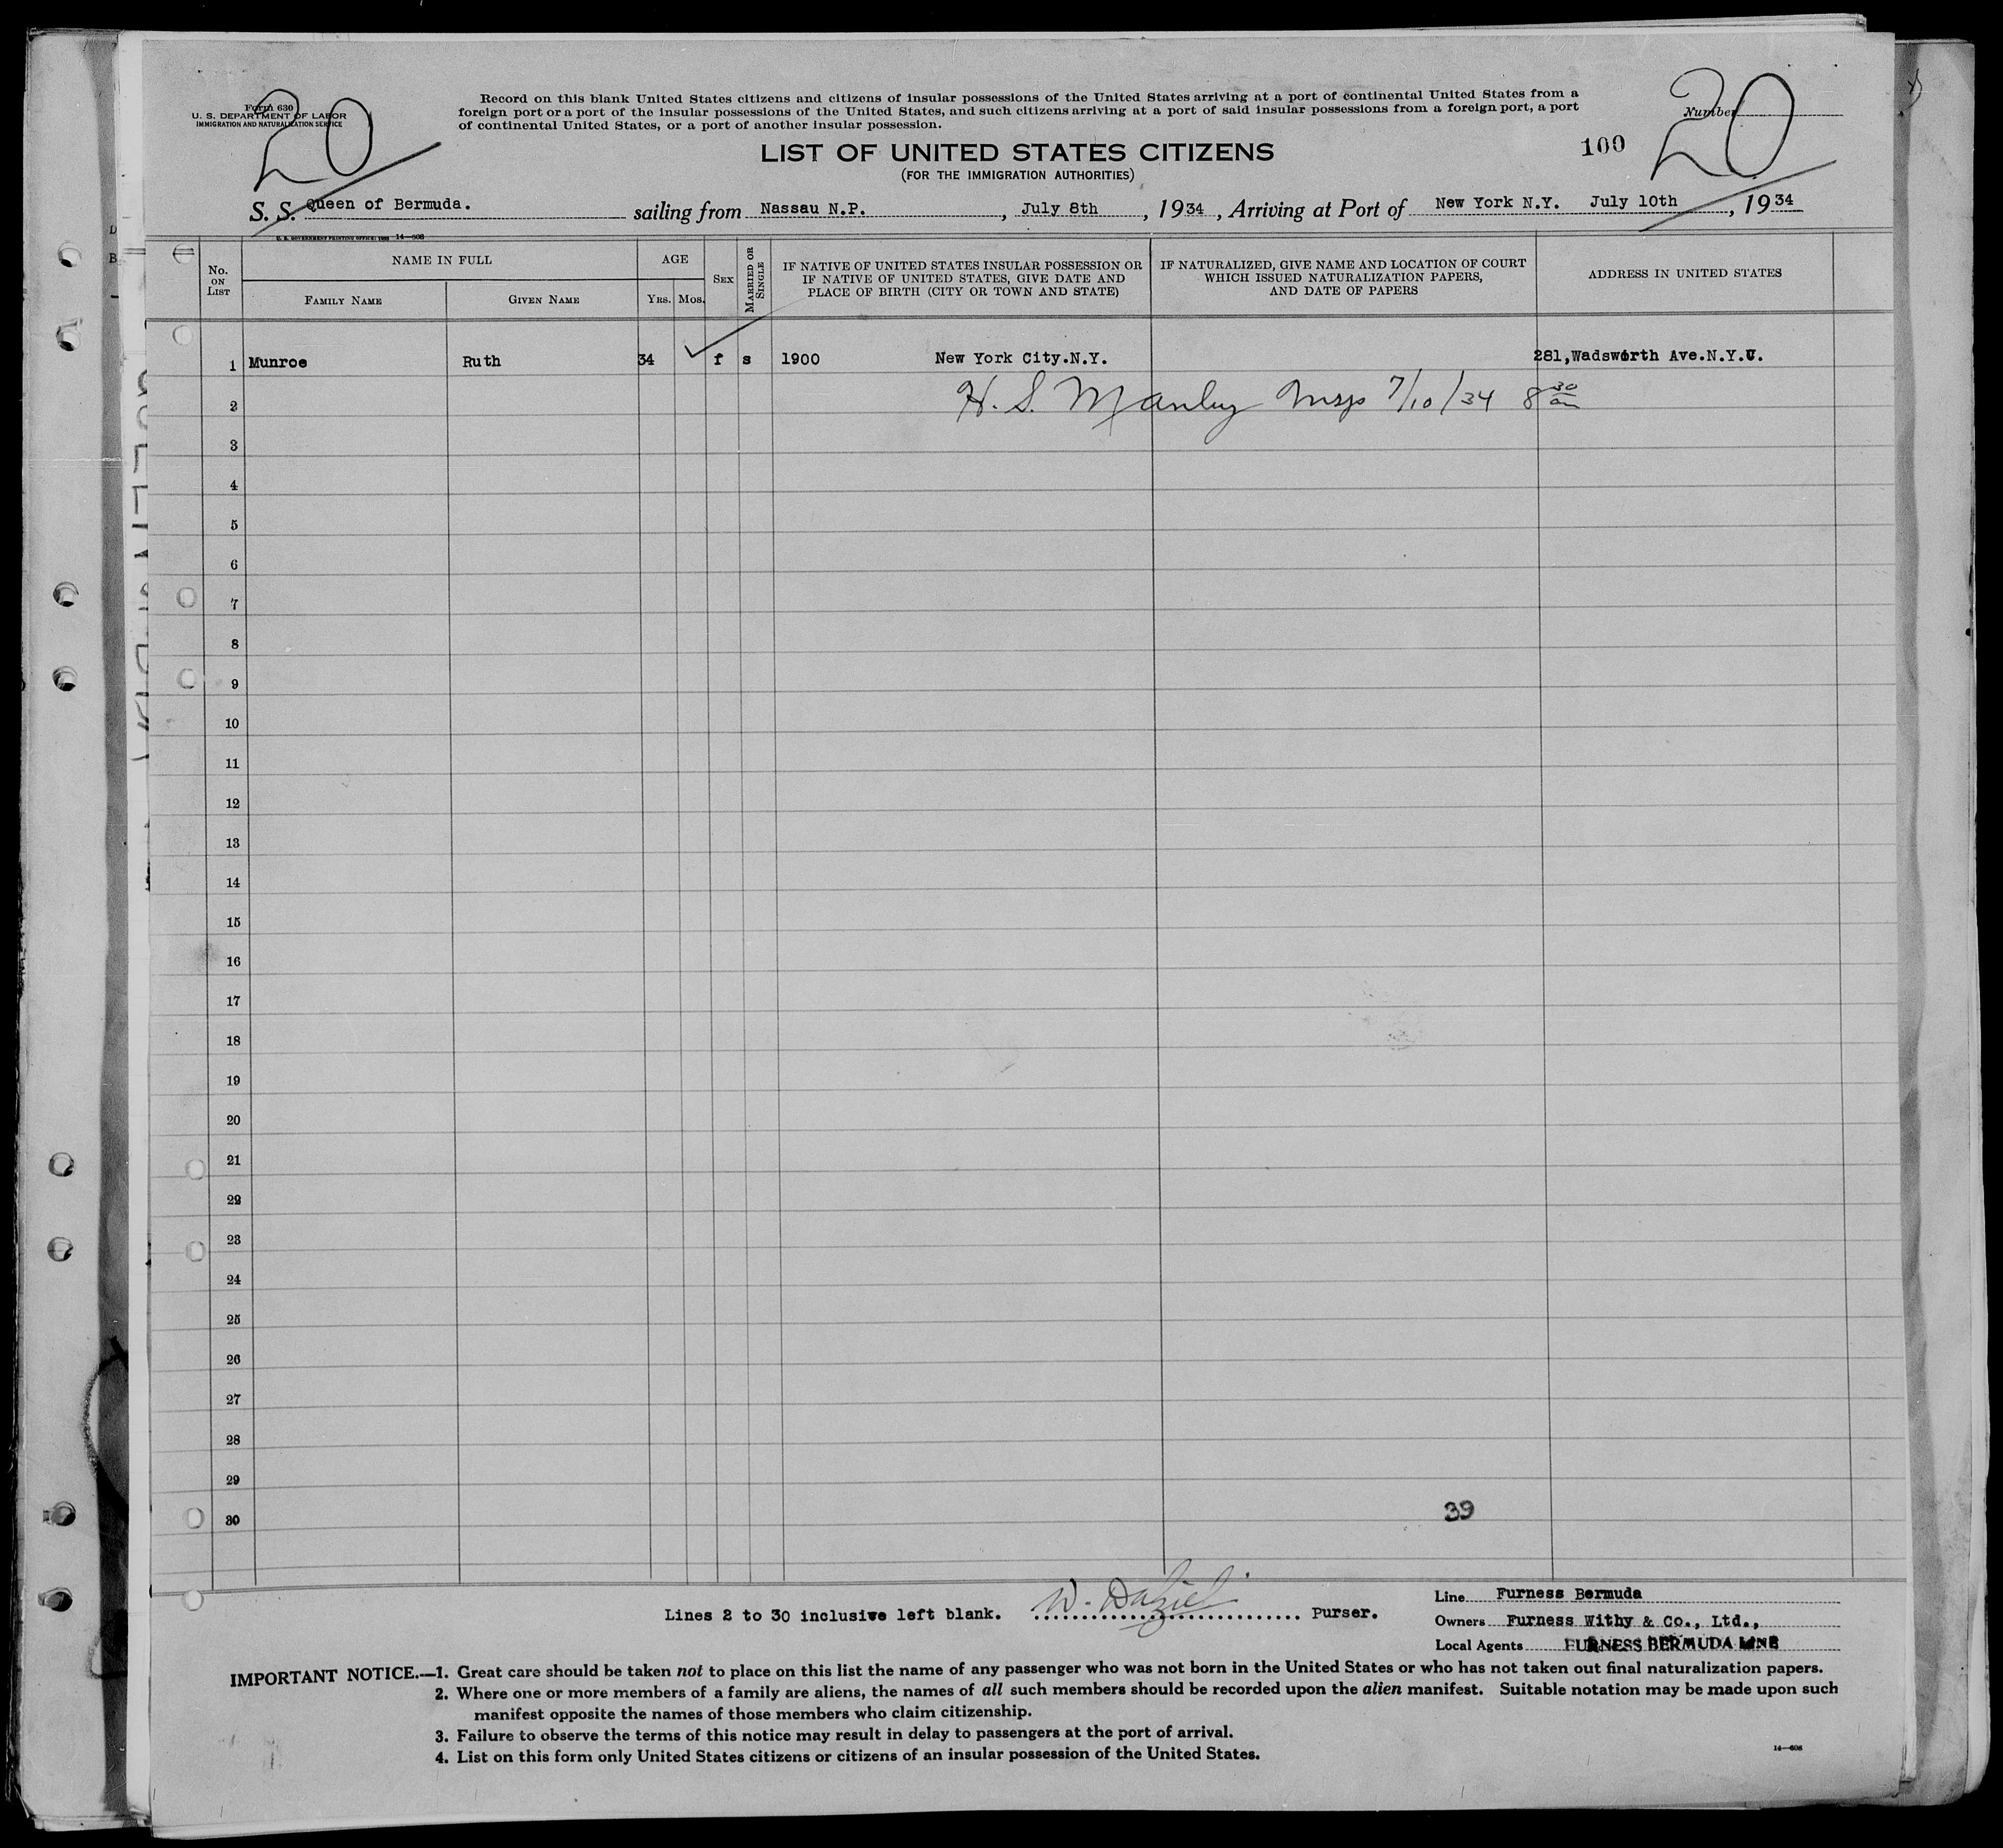 Form 630
U. S. DEPARTMENT OF LABOR
IMMIGRATION AND NATURALIZATION SERVICE
20
Record on this blank United States citizens and citizens of insular possessions of the United States arriving at a port of continental United States from a
foreign port or a port of the insular possessions of the United States, and such citizens arriving at a port of said insular possessions from a foreign port, a port
of continental United States, or a port of another insular possession.
Number
20
100
LIST OF UNITED STATES CITIZENS
(FOR THE IMMIGRATION AUTHORITIES)
S. S. Queen of Bermuda. sailing from Nassau N.P. , July 8th , 1934 , Arriving at Port of New York N.Y. July 10th , 1934
U. S. GOVERNMENT PRINTING OFFICE: 1933 14—608
No. ON LIST
NAME IN FULL
FAMILY NAME
GIVEN NAME
AGE
YRS. MOS.
SEX
MARRIED OR SINGLE
IF NATIVE OF UNITED STATES INSULAR POSSESSION OR
IF NATIVE OF UNITED STATES, GIVE DATE AND
PLACE OF BIRTH (CITY OR TOWN AND STATE)
IF NATURALIZED, GIVE NAME AND LOCATION OF COURT
WHICH ISSUED NATURALIZATION PAPERS,
AND DATE OF PAPERS
ADDRESS IN UNITED STATES
1 Munroe Ruth 34 f s 1900 New York City.N.Y. 281,Wadsworth Ave.N.Y.C.
2 H. S. Manley Insp 7/10/34 8 30 am
3
4
5
6
7
8
9
10
11
12
13
14
15
16
17
18
19
20
21
22
23
24
25
26
27
28
29
30
39
Lines 2 to 30 inclusive left blank. W. Dalziel Purser.
Line Furness Bermuda
Owners Furness Withy & Co., Ltd.,
Local Agents FURNESS BERMUDA LINE
IMPORTANT NOTICE.—1. Great care should be taken not to place on this list the name of any passenger who was not born in the United States or who has not taken out final naturalization papers.
2. Where one or more members of a family are aliens, the names of all such members should be recorded upon the alien manifest. Suitable notation may be made upon such
manifest opposite the names of those members who claim citizenship.
3. Failure to observe the terms of this notice may result in delay to passengers at the port of arrival.
4. List on this form only United States citizens or citizens of an insular possession of the United States.
14—608